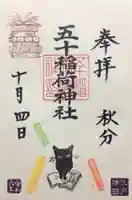 奉拝
秋分
五十稲荷神社
十月四日